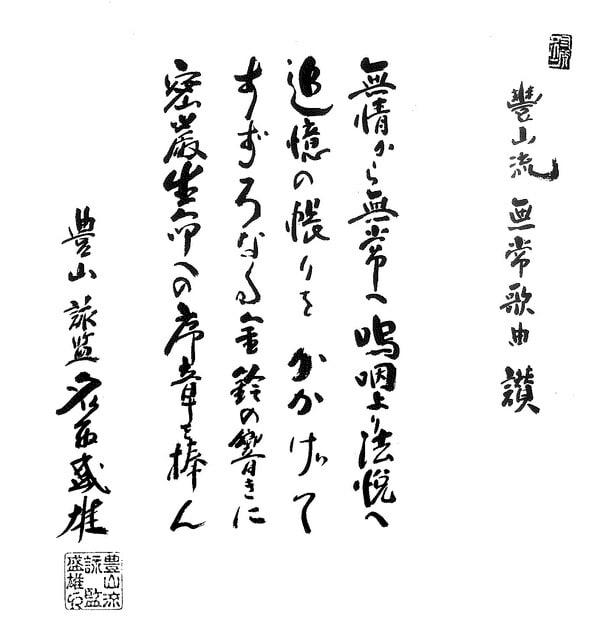 豐山流 無常歌曲 讚
無情から無常へ 嗚咽より法悦へ
追憶の帳りを かかげて
すずろなる金鈴の響きに
密嚴生命への序章を捧ん
豊山 詠監 盛雄
豊山流
詠監
盛雄印